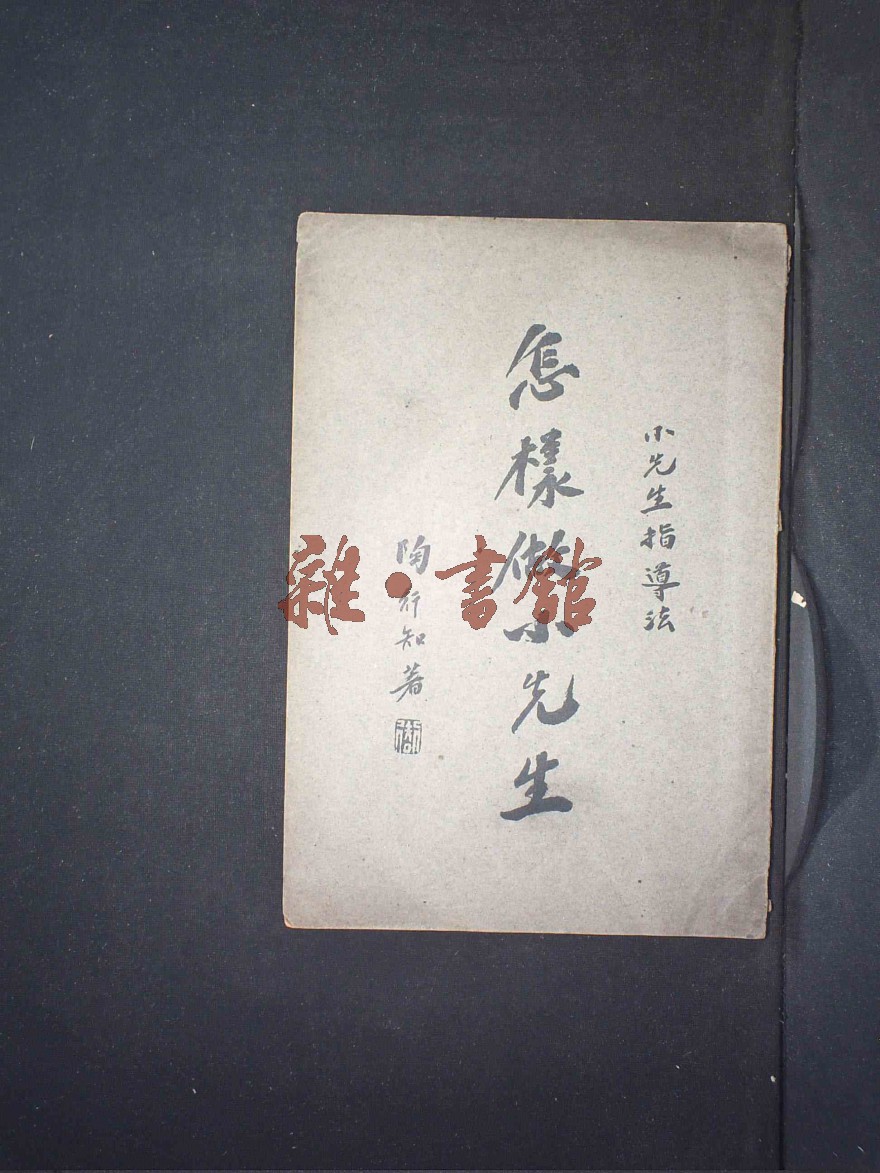 小先生指導法
怎樣做小先生
陶行知著
雜·書館